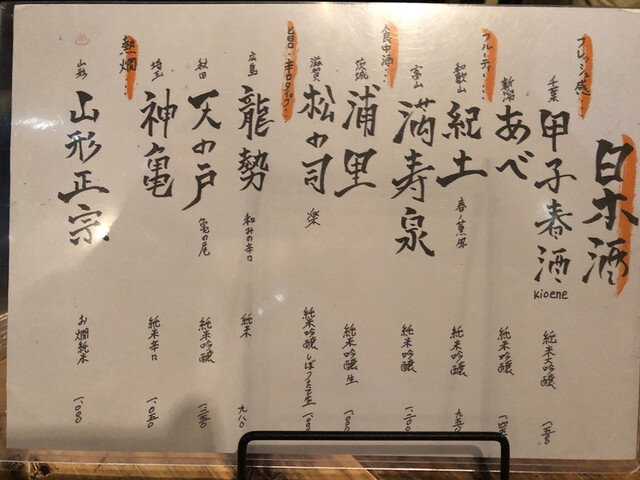 日本酒
フレッシュ感…
千葉 甲子春酒 kioene 純米大吟醸 一、一五〇
新潟 あべ 純米吟醸
フルーティー…
和歌山 紀土 春ノ薫風 純米吟醸 九五〇
富山 満寿泉 純米吟醸 一、一〇〇
食中酒…
茨城 浦里 純米吟醸 生 一、〇〇〇
滋賀 松の司 楽 純米吟醸
旨口・辛口タイプ…
広島 龍勢 和みの辛口 純米 九八〇
秋田 天の戸 亀の尾 純米吟醸 一、三五〇
熱燗…
埼玉 神亀 純米辛口 一、〇五〇
山形 山形正宗 お燗純米 一、〇〇〇